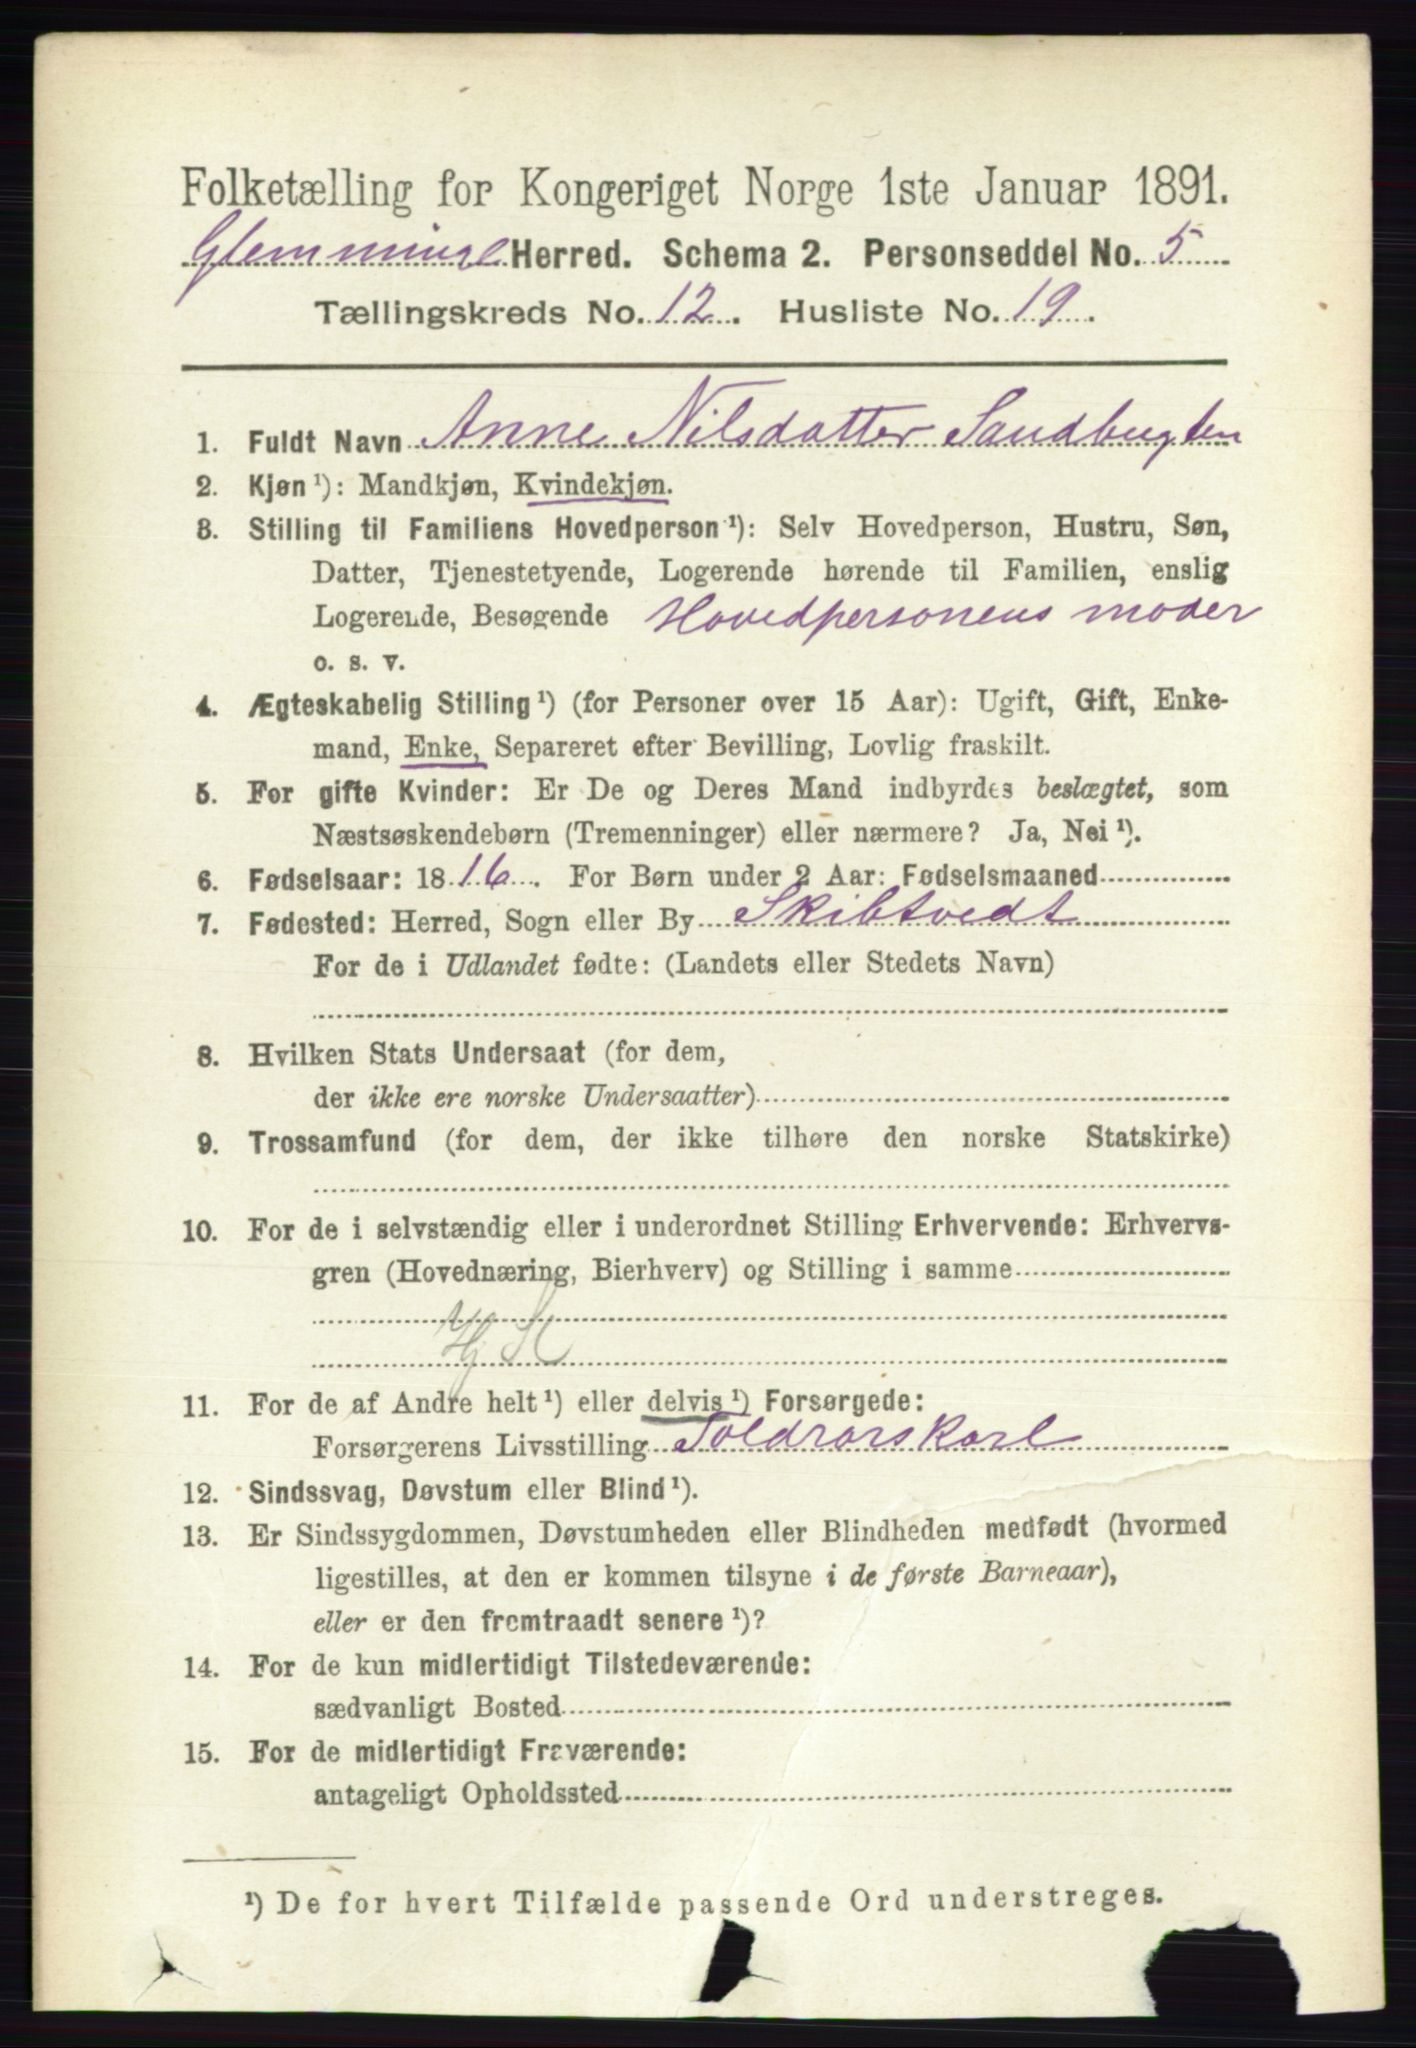 Folketælling for Kongeriget Norge 1ste Januar 1891.
Glemminge Herred. Schema 2. Personseddel No. 5
Tællingskreds No. 12. Husliste No. 19.
1. Fuldt Navn Anne Nilsdatter Sandbugten
2. Kjøn ¹): Mandkjøn, Kvindekjøn.
3. Stilling til Familiens Hovedperson ¹): Selv Hovedperson, Hustru, Søn,
Datter, Tjenestetyende, Logerende hørende til Familien, enslig
Logerende, Besøgende Hovedpersonens moder
o. s. v.
4. Ægteskabelig Stilling ¹) (for Personer over 15 Aar): Ugift, Gift, Enke-
mand, Enke, Separeret efter Bevilling, Lovlig fraskilt.
5. For gifte Kvinder: Er De og Deres Mand indbyrdes beslægtet, som
Næstsøskendebørn (Tremenninger) eller nærmere? Ja, Nei ¹).
6. Fødselsaar: 1816. For Børn under 2 Aar: Fødselsmaaned
7. Fødested: Herred, Sogn eller By Skibtvedt
For de i Udlandet fødte: (Landets eller Stedets Navn)
8. Hvilken Stats Undersaat (for dem,
der ikke ere norske Undersaatter)
9. Trossamfund (for dem, der ikke tilhøre den norske Statskirke)
10. For de i selvstændig eller i underordnet Stilling Erhvervende: Erhvervs-
gren (Hovednæring, Bierhverv) og Stilling i samme
11. For de af Andre helt ¹) eller delvis ¹) Forsørgede:
Forsørgerens Livsstilling Toldrorskarl
12. Sindssvag, Døvstum eller Blind ¹).
13. Er Sindssygdommen, Døvstumheden eller Blindheden medfødt (hvormed
ligestilles, at den er kommen tilsyne i de første Barneaar),
eller er den fremtraadt senere ¹)?
14. For de kun midlertidigt Tilstedeværende:
sædvanligt Bosted
15. For de midlertidigt Fraværende:
antageligt Opholdssted
¹) De for hvert Tilfælde passende Ord understreges.